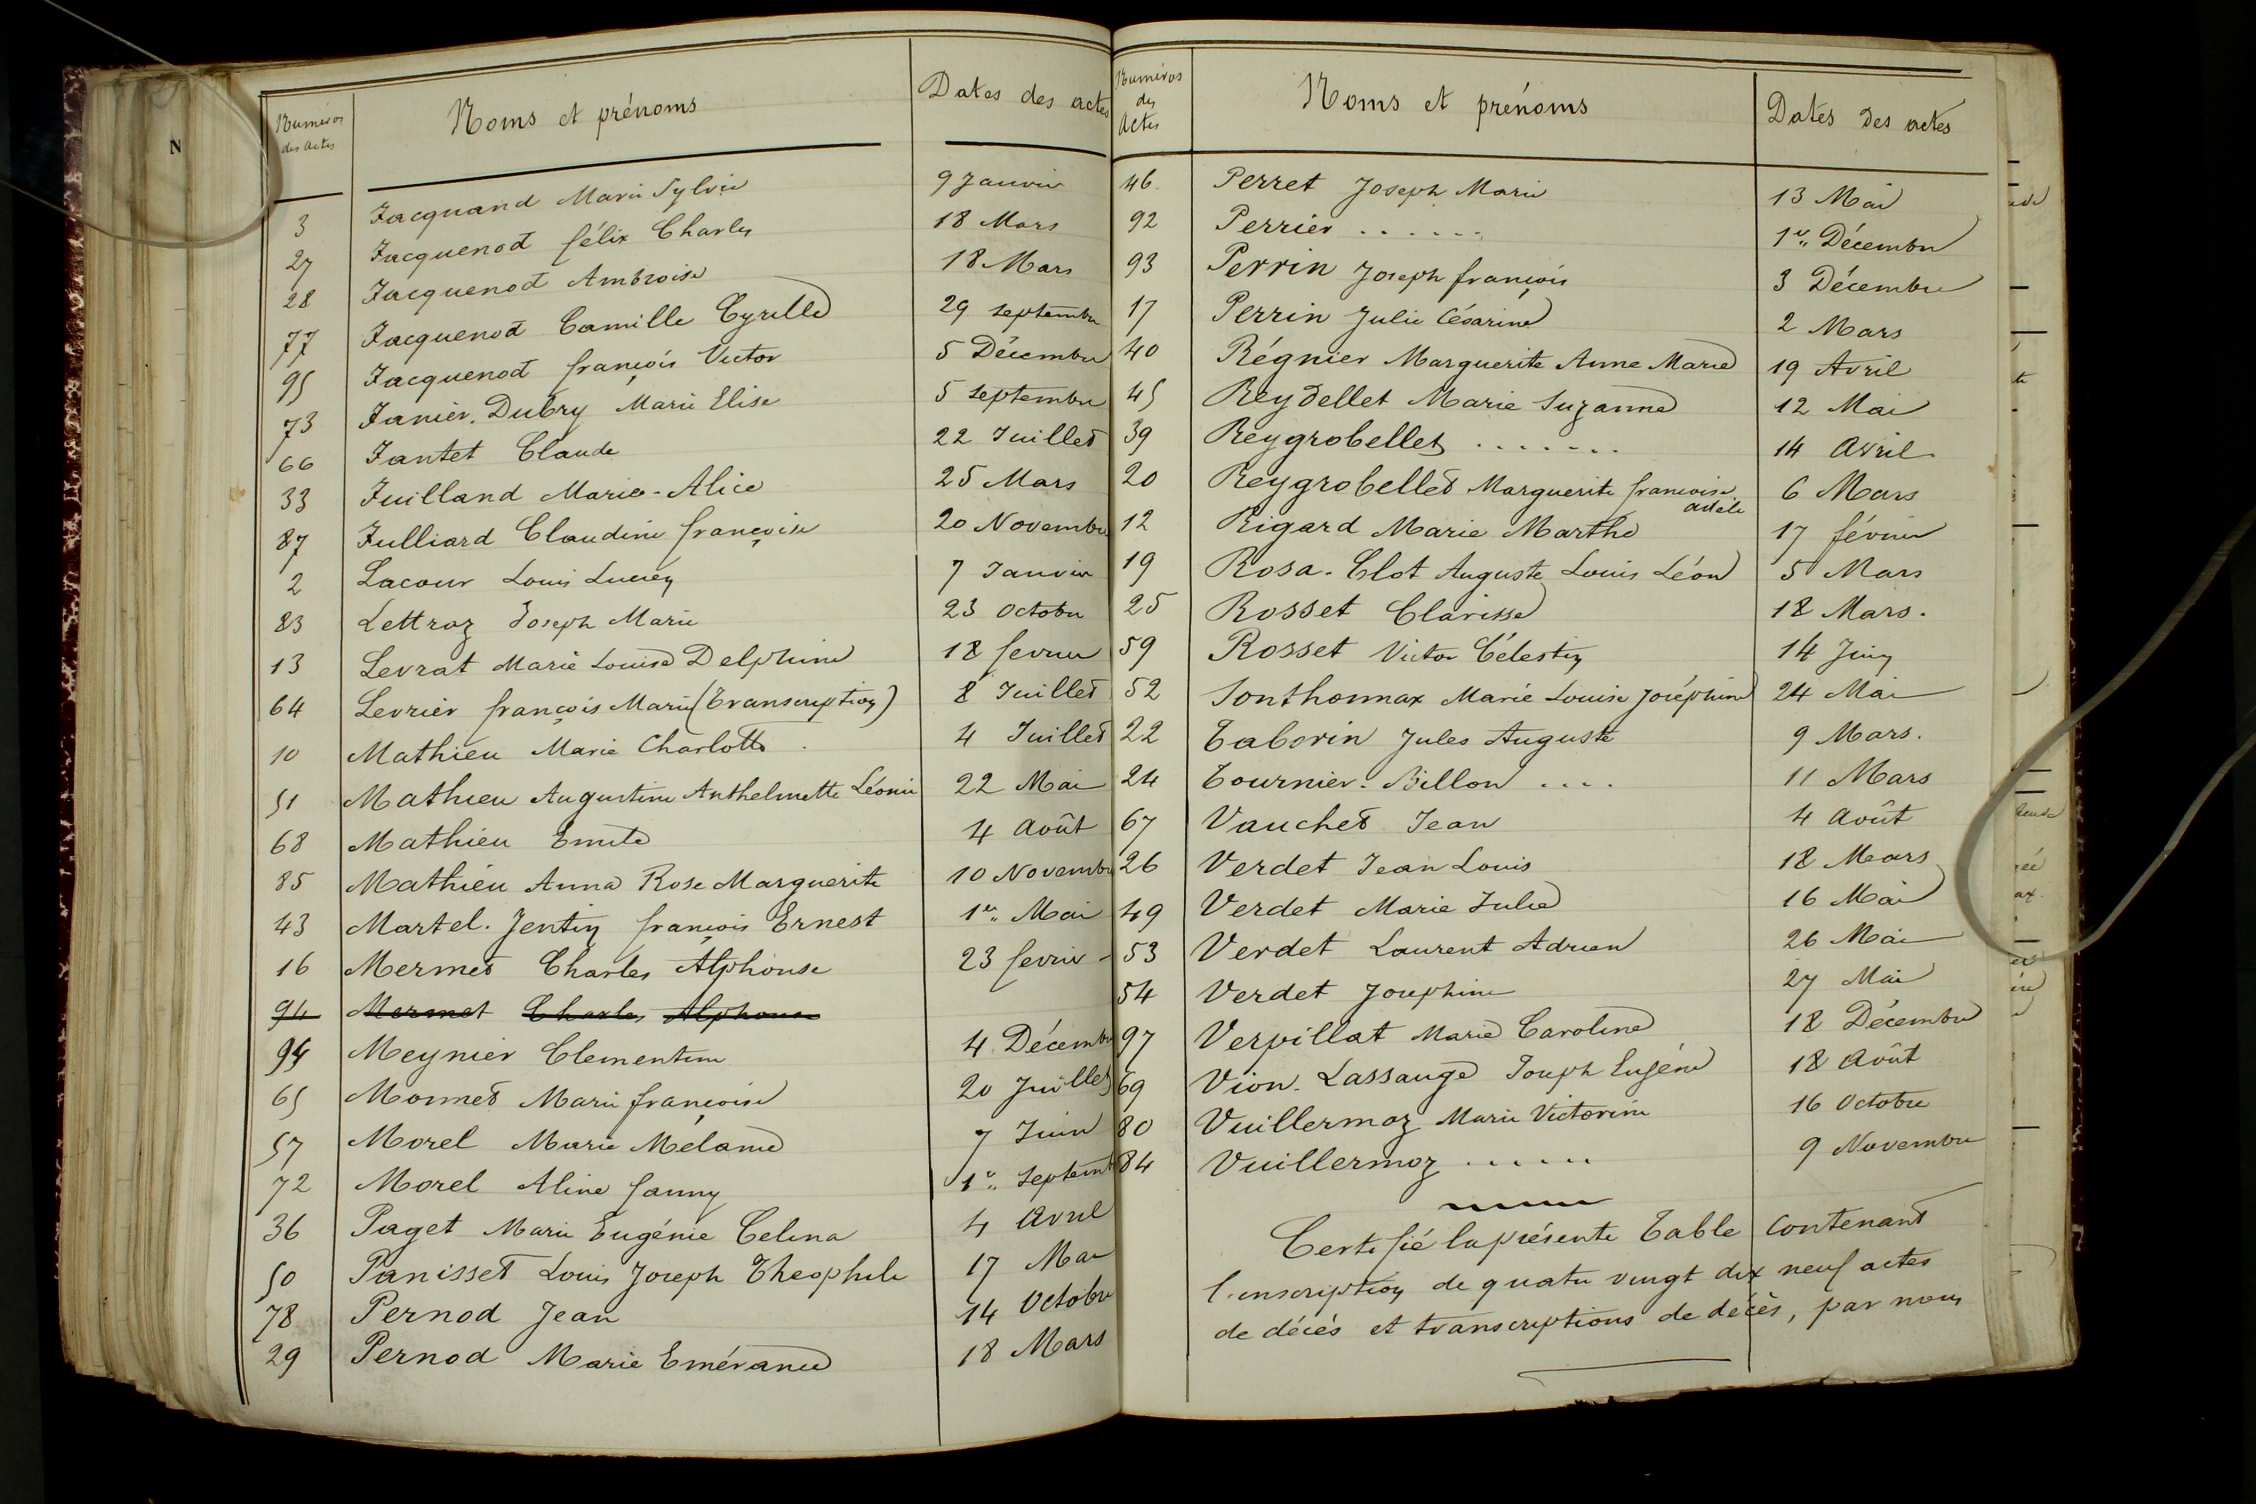 N
Numéros des Actes | Noms et prénoms | Dates des actes
3 Jacquand Marie Sylvie 9 Janvier
27 Jacquenod félix Charles 18 Mars
28 Jacquenod Ambroise 18 Mars
77 Jacquenod Camille Cyrille 29 septembre
95 Jacquenod françois Victor 5 Décembre
73 Janier. Dubry Marie Elise 5 septembre
66 Jantet Claude 22 Juillet
33 Juilland Marie-Alice 25 Mars
87 Julliard Claudine françoise 20 Novembre
2 Lacour Louis Lucien 7 Janvier
83 Lettraz Joseph Marie 23 octobre
13 Levrat Marie Louise Delphine 18 fevrier
64 Levrier françois Marie (Transcription) 8 Juillet
10 Mathieu Marie Charlotte 4 Juillet
51 Mathieu Augustine Anthelmette Léonie 22 Mai
68 Mathieu Emile 4 Août
85 Mathieu Anna Rose Marguerite 10 Novembre
43 Martel. Jentin françois Ernest 1er Mai
16 Mermet Charles Alphonse 23 fevrier
94 Mermet Charles Alphonse
94 Meynier Clementine 4 Décembre
65 Monnet Marie françoise 20 Juillet
57 Morel Marie Mélanie 7 Juin
72 Morel Aline fanny 1er septemb
36 Paget Marie Eugénie Celina 4 Avril
50 Panisset Louis Joseph Theophile 17 Mai
78 Pernod Jean 14 Octobre
29 Pernod Marie Emérance 18 Mars
Numéros des Actes | Noms et prénoms | Dates des actes
46 Perret Joseph Marie 13 Mai
92 Perrier . . . . . . 1er Décembre
93 Perrin Joseph françois 3 Décembre
17 Perrin Julie Césarine 2 Mars
40 Régnier Marguerite Anne Marie 19 Avril
45 Reydellet Marie Suzanne 12 Mai
39 Reygrobellet . . . . . . . 14 Avril
20 Reygrobellet Marguerite françoise adèle 6 Mars
12 Rigard Marie Marthe 17 février
19 Rosa. Clot Auguste Louis Léon 5 Mars
25 Rosset Clarisse 18 Mars.
59 Rosset Victor Célestin 14 Juin
52 Sonthonnax Marie Louise Joséphine 24 Mai
22 Taborin Jules Auguste 9 Mars.
24 Tournier. Billon . . . . 11 Mars
67 Vauchet Jean 4 Août
26 Verdet Jean Louis 18 Mars
49 Verdet Marie Julie 16 Mai
53 Verdet Laurent Adrien 26 Mai
54 Verdet Josephine 27 Mai
97 Verpillat Marie Caroline 18 Décembre
69 Vion. Lassauge Joseph Eugène 18 Août
80 Vuillermoz Marie Victorine 16 Octobre
84 Vuillermoz . . . . . . 9 Novembre
Certifié la présente Table contenant
l'inscription de quatre vingt dix neuf actes
de décès et transcriptions de décès, par nous